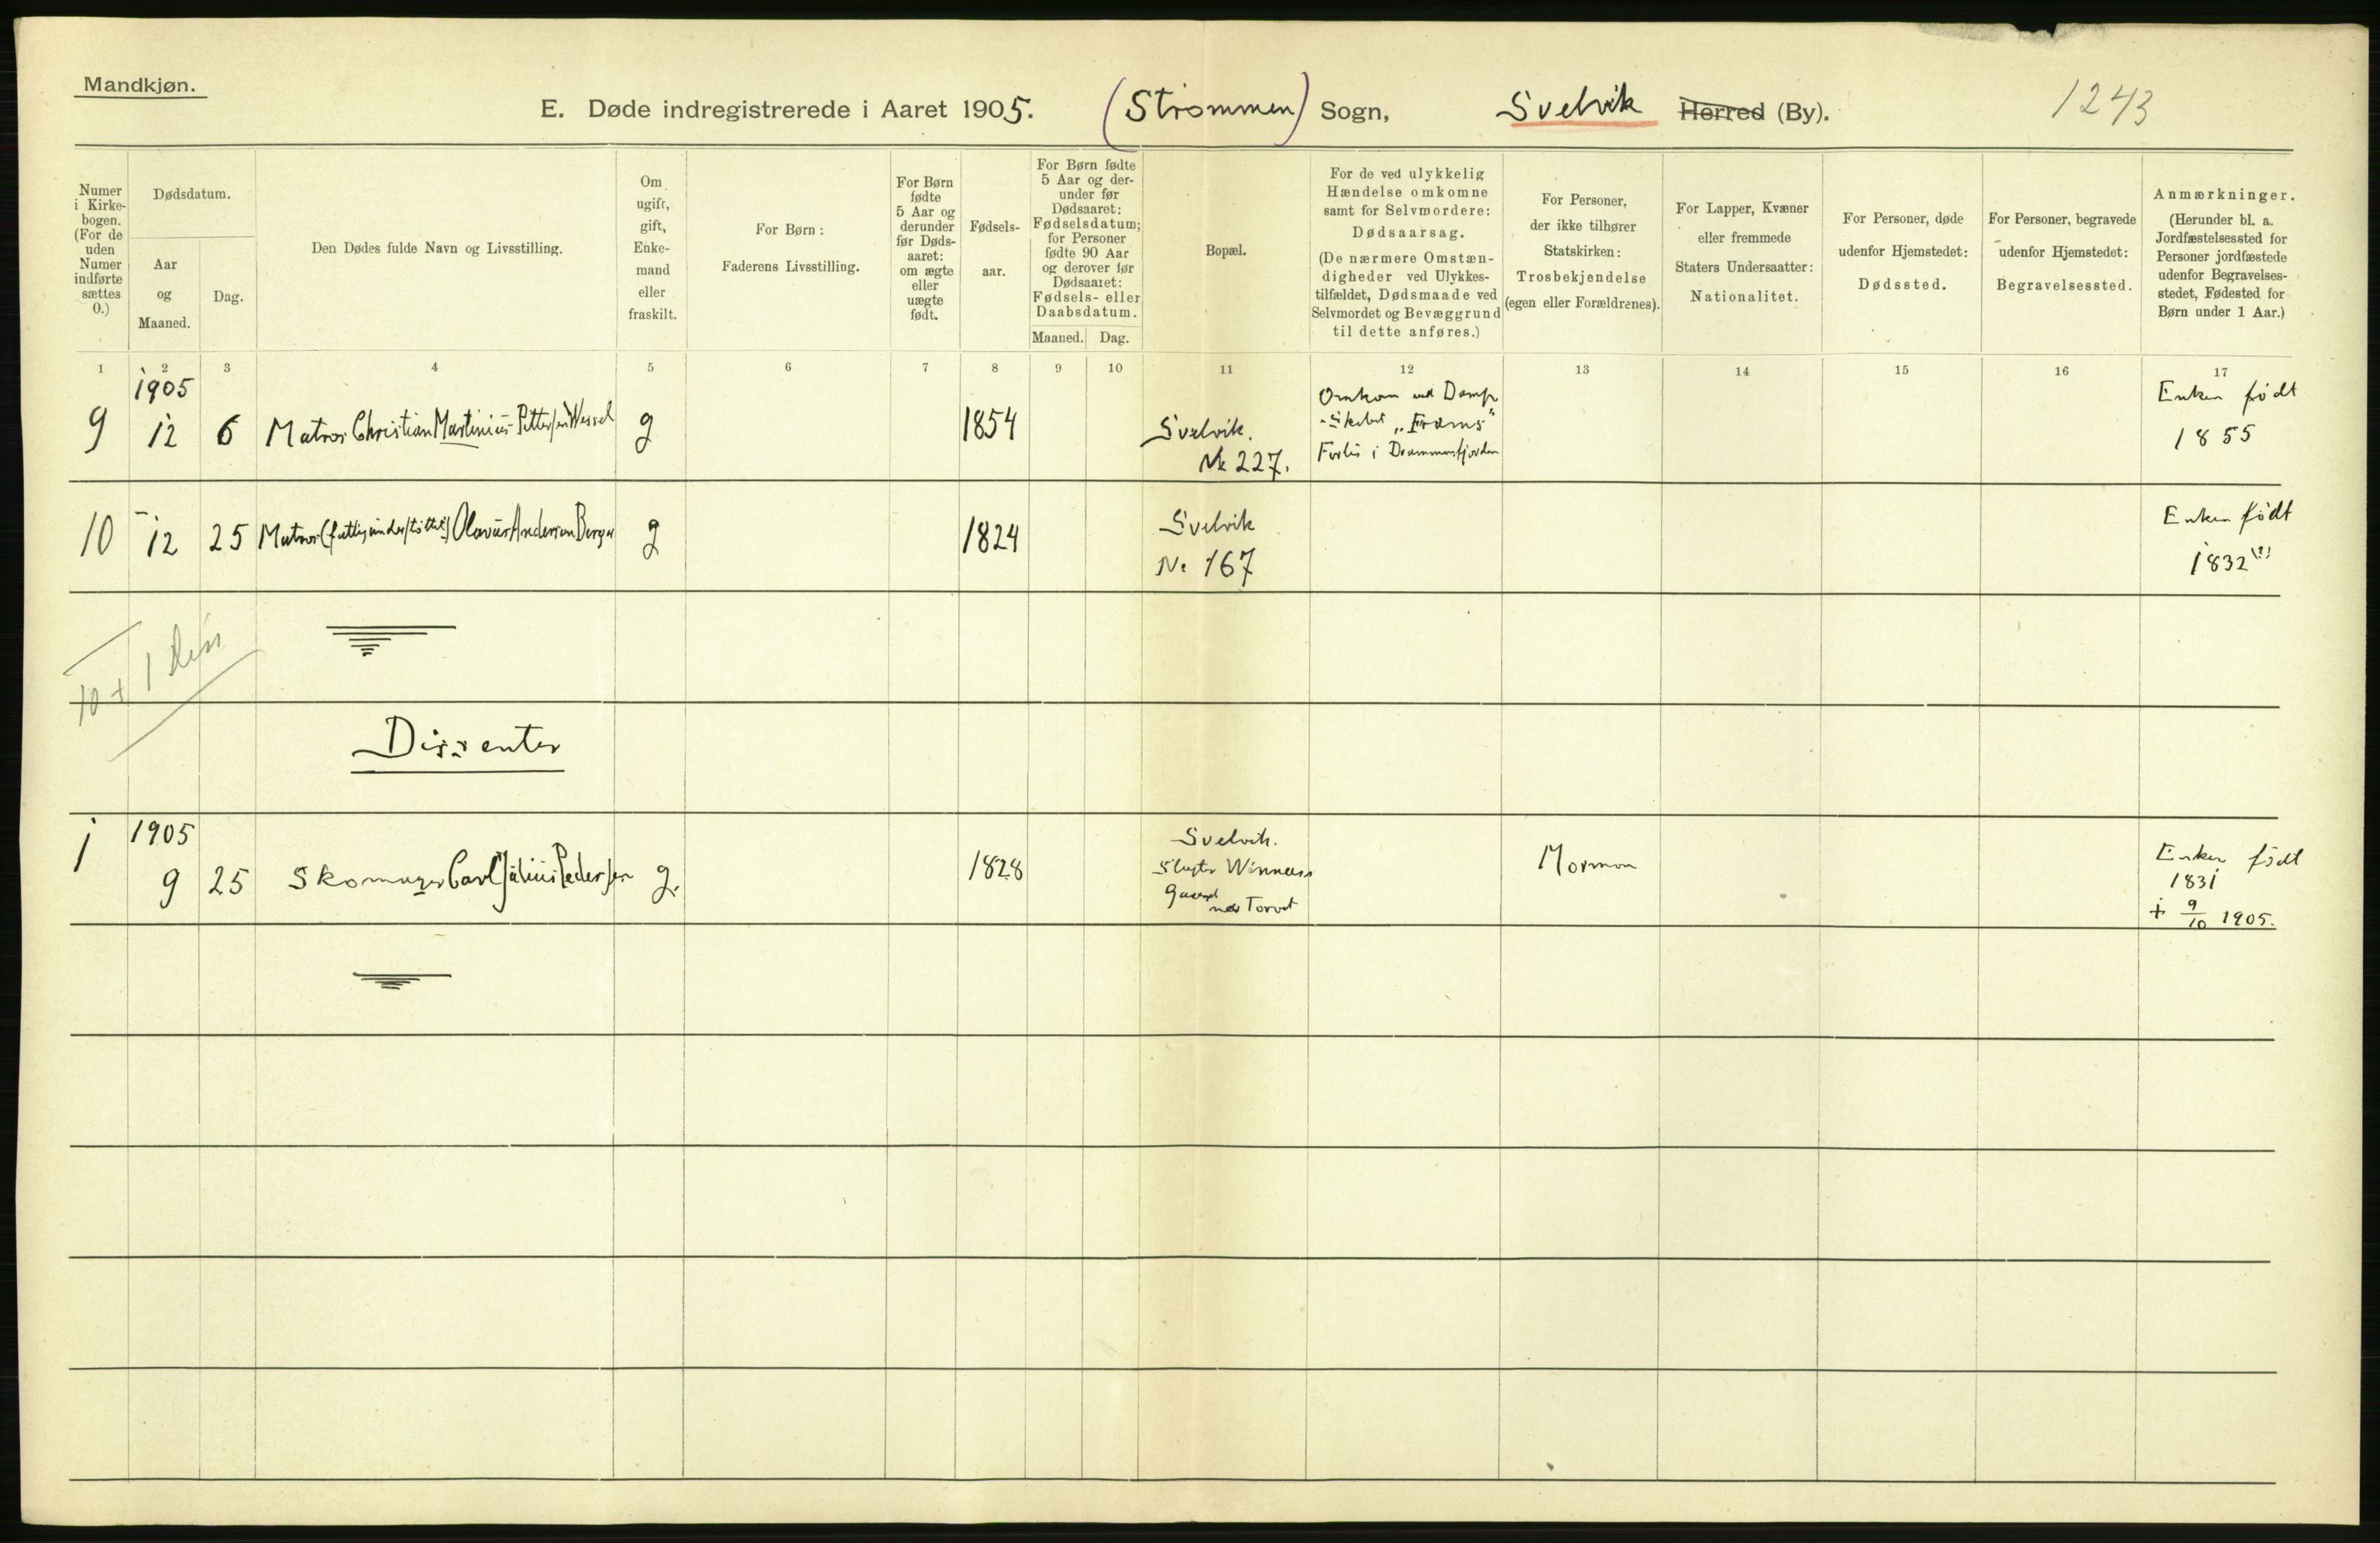 Mandkjøn.
E. Døde indregistrerede i Aaret 1905. (Strømmen) Sogn, Svelvik Herred (By). 1243
Numer
i Kirke-
bogen.
(For de
uden
Numer
indførte
sættes
0.)
Dødsdatum.
Aar
og
Maaned.
Dag.
Den Dødes fulde Navn og Livsstilling.
Om
ugift,
gift,
Enke-
mand
eller
fraskilt.
For Børn:
Faderens Livsstilling.
For Børn
fødte
5 Aar og
derunder
før Døds-
aaret:
om ægte
eller
uægte
født.
Fødsels-
aar.
For Børn fødte
5 Aar og der-
under før
Dødsaaret:
Fødselsdatum;
for Personer
fødte 90 Aar
og derover før
Dødsaaret:
Fødsels- eller
Daabsdatum.
Maaned. Dag.
Bopæl.
For de ved ulykkelig
Hændelse omkomne
samt for Selvmordere:
Dødsaarsag.
(De nærmere Omstæn-
digheder ved Ulykkes-
tilfældet, Dødsmaade ved
Selvmordet og Bevæggrund
til dette anføres.)
For Personer,
der ikke tilhører
Statskirken:
Trosbekjendelse
(egen eller Forældrenes).
For Lapper, Kvæner
eller fremmede
Staters Undersaatter:
Nationalitet.
For Personer, døde
udenfor Hjemstedet:
Dødssted.
For Personer, begravede
udenfor Hjemstedet:
Begravelsessted.
Anmærkninger.
(Herunder bl. a.
Jordfæstelsessted for
Personer jordfæstede
udenfor Begravelses-
stedet, Fødested for
Børn under 1 Aar.)
1 2 3 4 5 6 7 8 9 10 11 12 13 14 15 16 17
1905
9 12 6 Matros Christian Martinius Pettersen Wessel g 1854
Svelvik.
No 227.
Omkom ved Damp
-skibet „Frams"
Forlis i Drammensfjorden
Enken født
1855
10 12 25 Matros (fattigunderstøttet) Olavus Andersen Berger g 1824
Svelvik
No 167
Enken født
1832 (?)
10 + 1 diss
Dissenter
1905
1 9 25 Skomager Carl Julius Pedersen g. 1828
Svelvik.
Slagter
ved Torvet
Mormon
Enken født
1831
+ 9/10 1905.